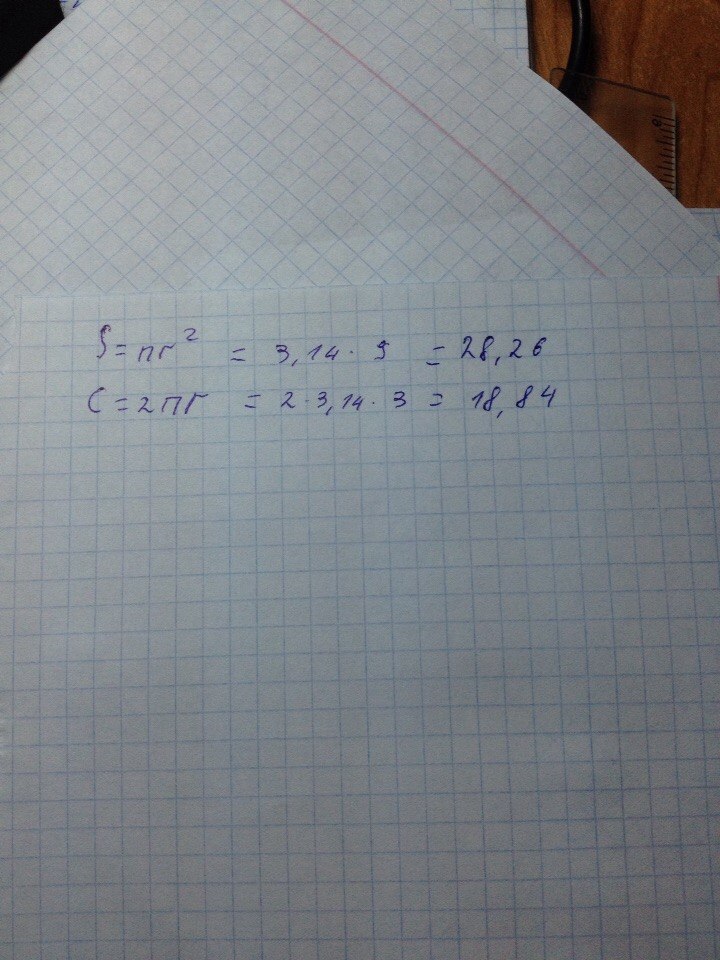 S = πr² = 3,14 · 9 = 28,26
C = 2πr = 2 · 3,14 · 3 = 18,84